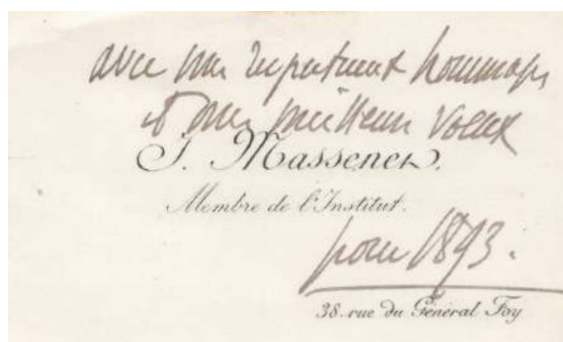 avec mes respectueux hommages
et mes meilleurs voeux
J. Massenet.
Membre de l'Institut.
pour 1893.
38. rue du Général Foy